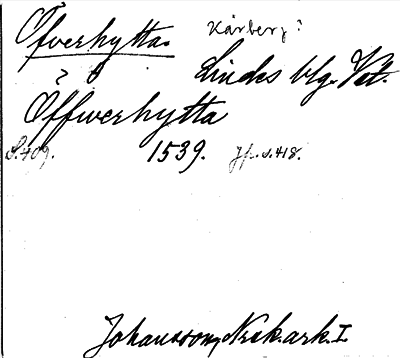 Öfverhytta. Kårberg?
Lindes blg. Vstm.
Öffwerhytta
S. 409. 1539. Jfr. s. 418.
Johansson, Norask. ark. I